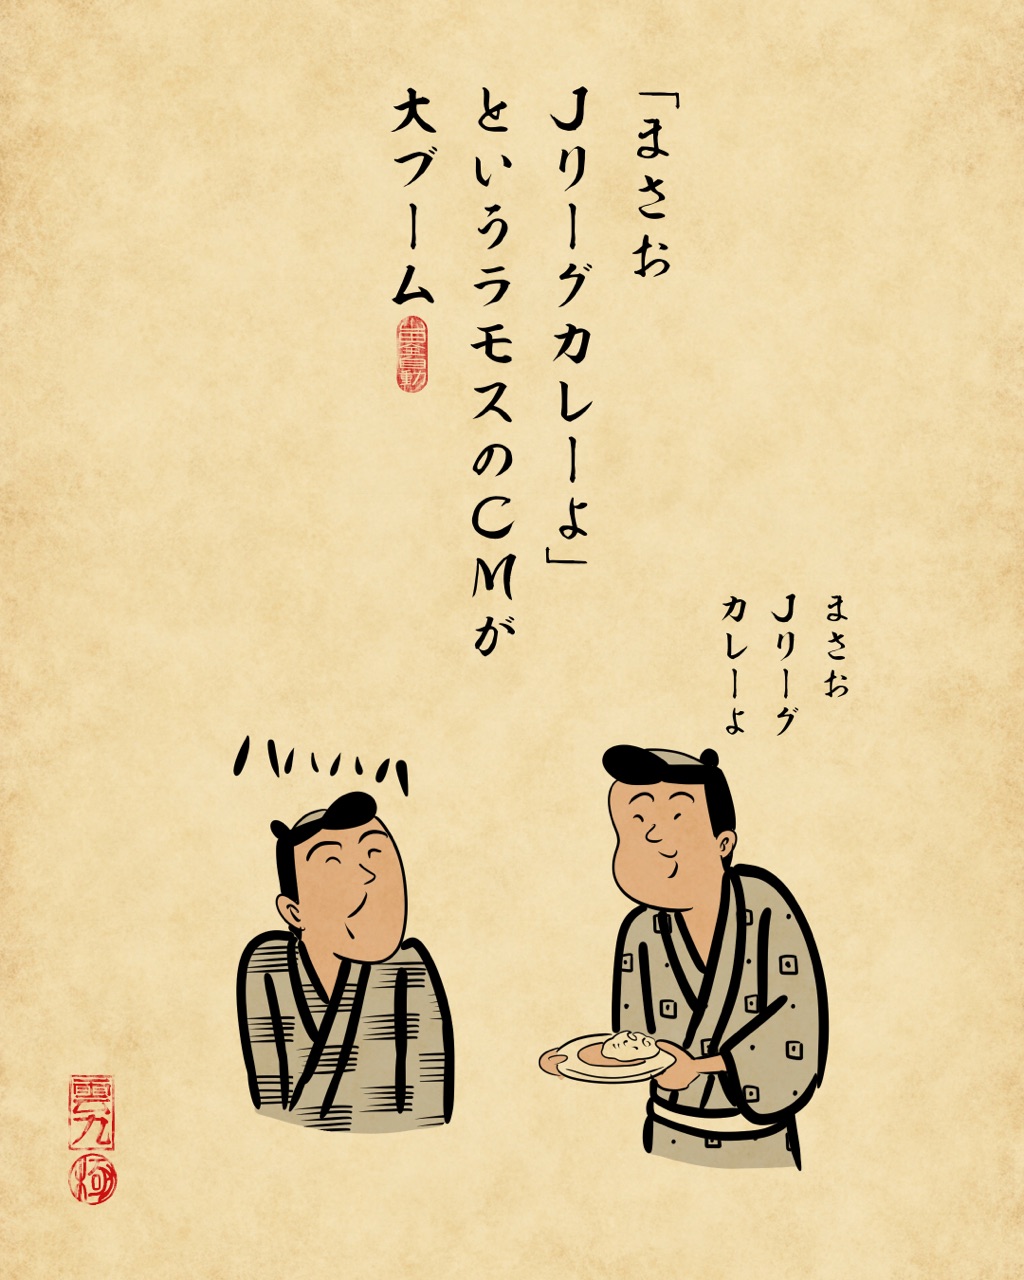 「まさお
Jリーグカレーよ」
というラモスのCMが
大ブーム
まさお
Jリーグ
カレーよ